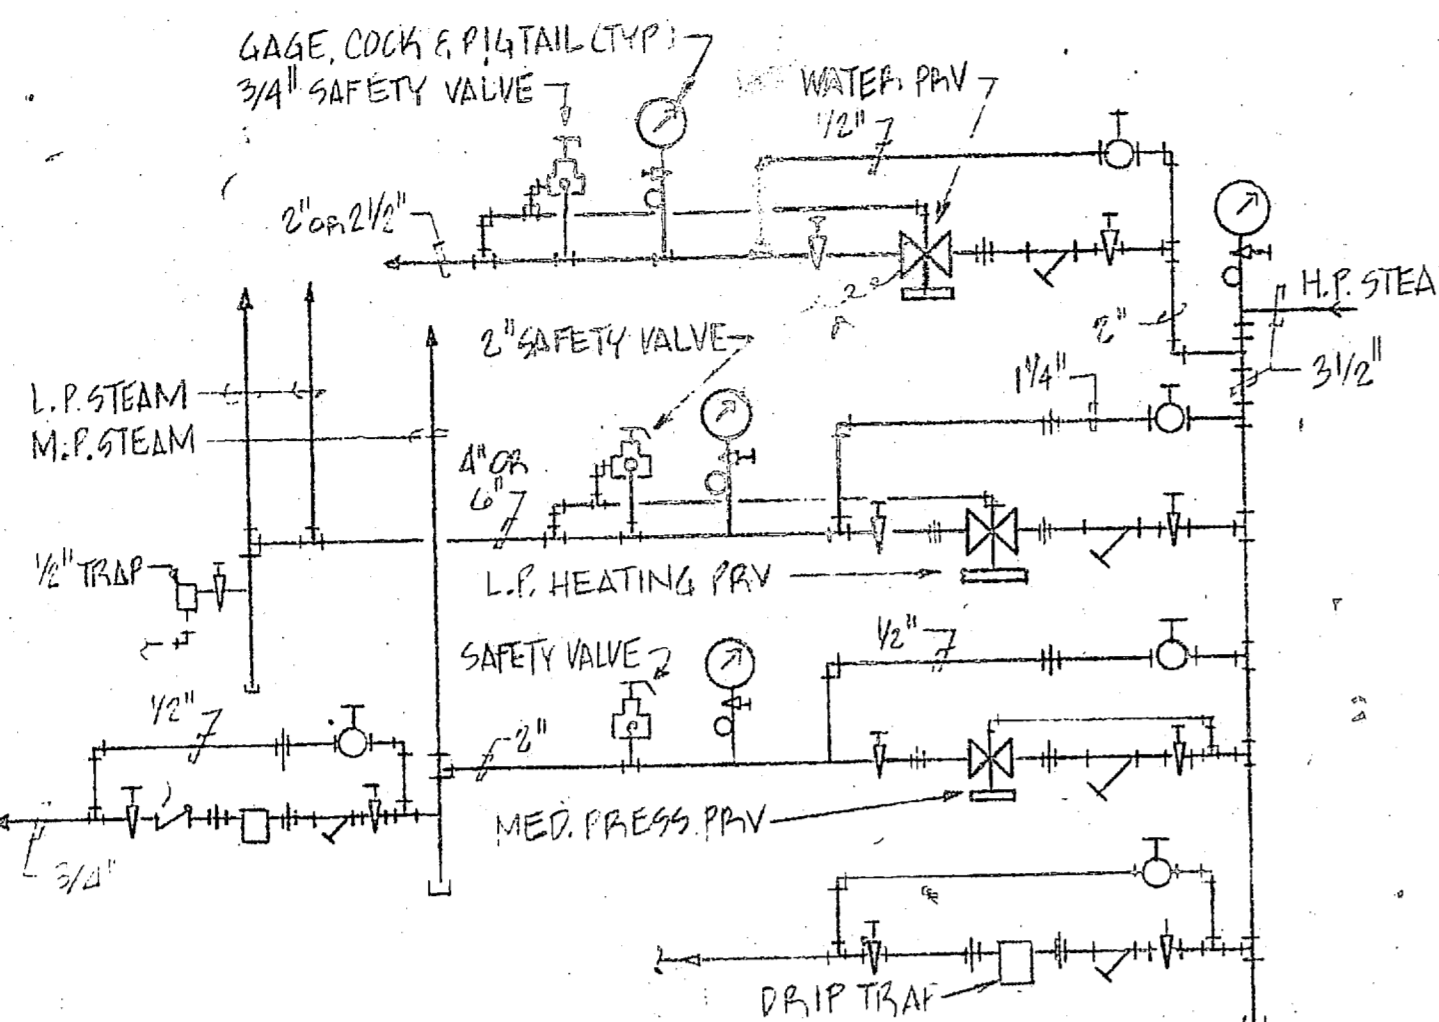 GAGE, COCK & PIGTAIL (TYP)
3/4" SAFETY VALVE
WATER PRV
1/2"
2" OR 2 1/2"
H.P. STEA
2"
2" SAFETY VALVE
3 1/2"
1 1/4"
L.P. STEAM
M.P. STEAM
4" OR
6"
1/2" TRAP
L.P. HEATING PRV
1/2"
SAFETY VALVE
1/2"
2"
MED. PRESS. PRV
3/4"
DRIP TRAP